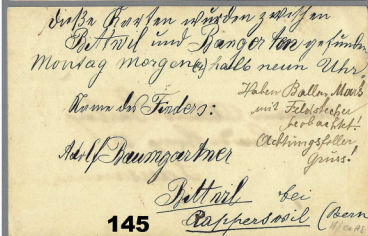 Diese Karten wurden zwischen
Bittwil und Rangerten gefunden
Montag morgen halb neun Uhr
Haben Ballon Mars
mit Feldstecher
beobachtet!
Achtungsvoller
Gruss!
Name des Finders:
Adolf Baumgartner
Bittwil bei
Rapperswil (Bern
145